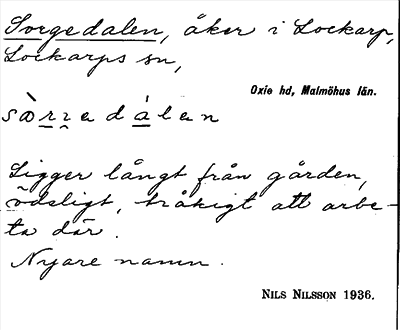 Sorgedalen, åker i Lockarp,
Lockarps sn,
Oxie hd, Malmöhus län.
sàrredálen
Ligger långt från gården,
ödsligt, tråkigt att arbe-
ta där.
Nyare namn.
NILS NILSSON 1936.